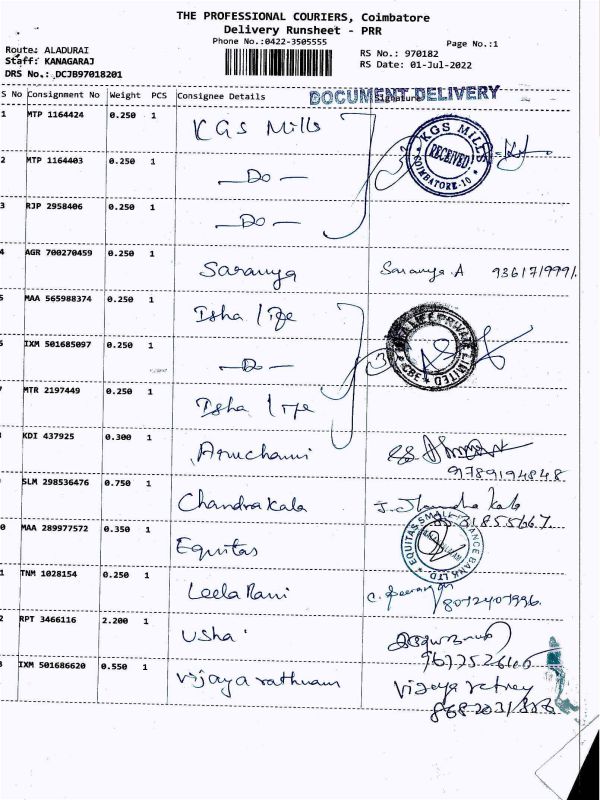 THE PROFESSIONAL COURIERS, Coimbatore
Delivery Runsheet - PRR
Phone No.:0422-3505555
Page No.:1
Route: ALADURAI
Staff: KANAGARAJ
DRS No.: DCJB97018201
RS No.: 970182
RS Date: 01-Jul-2022
DOCUMENT DELIVERY
S No Consignment No Weight PCS Consignee Details Signature
1 MTP 1164424 0.250 1 KGS Mills
KGS MILLS RECEIVED COIMBATORE-10
2 MTP 1164403 0.250 1 - Do -
3 RJP 2958406 0.250 1 - Do -
4 AGR 700270459 0.250 1 Saranya Saranya A 9361719991
5 MAA 565988374 0.250 1 Isha life
6 IXM 501685097 0.250 1 - Do - 3
LIMITED
MTR 2197449 0.250 1 Isha life
KDI 437925 0.300 1 Aruchami
9789194848
SLM 298536476 0.750 1 Chandrakala
0 MAA 289977572 0.350 1 Equitas
EQUITAS SMALL FINANCE BANK LTD
1 TNM 1028154 0.250 1 Leela Rani 8072407996
2 RPT 3466116 2.200 1 Usha
3 IXM 501686620 0.550 1 Vijaya rathnam